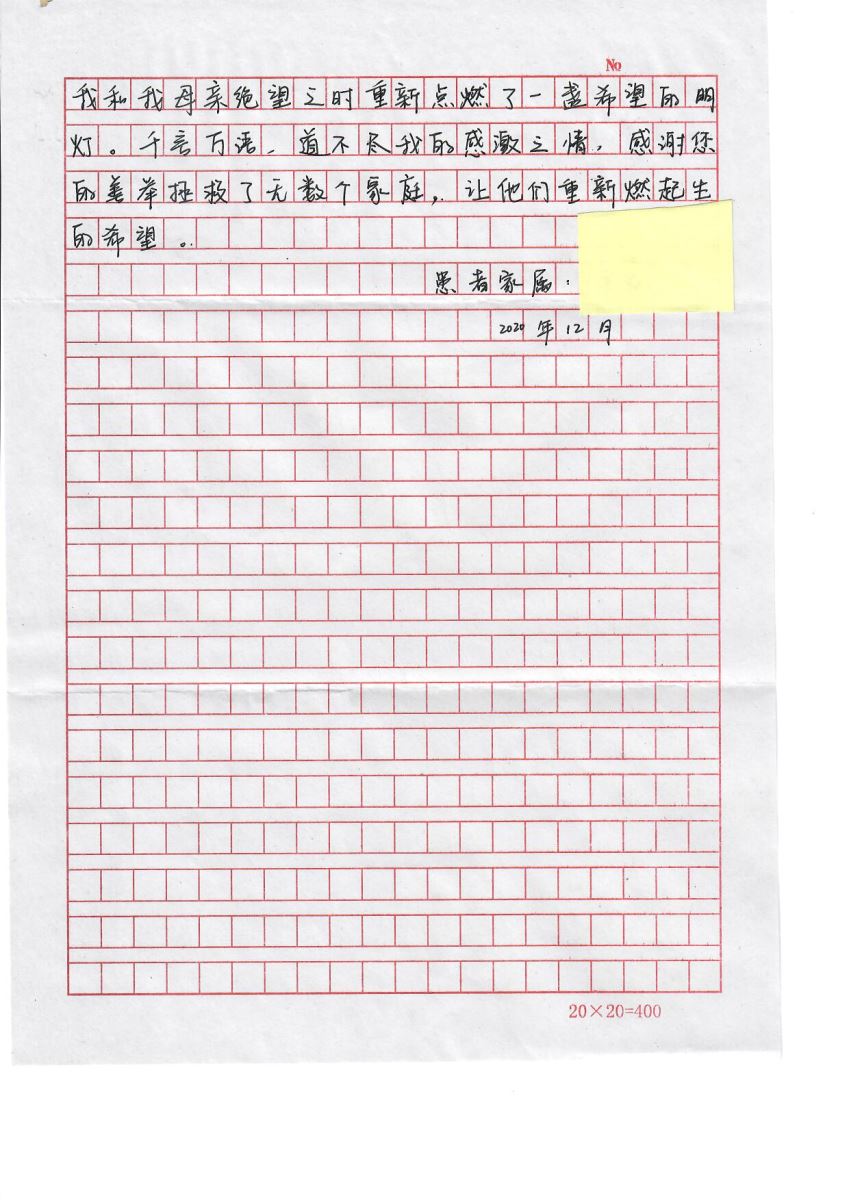 №
我和我母亲绝望之时重新点燃了一盏希望的明
灯。千言万语，道不尽我的感激之情，感谢您
的善举拯救了无数个家庭，让他们重新燃起生
的希望。
患者家属：
2020年12月
20×20=400